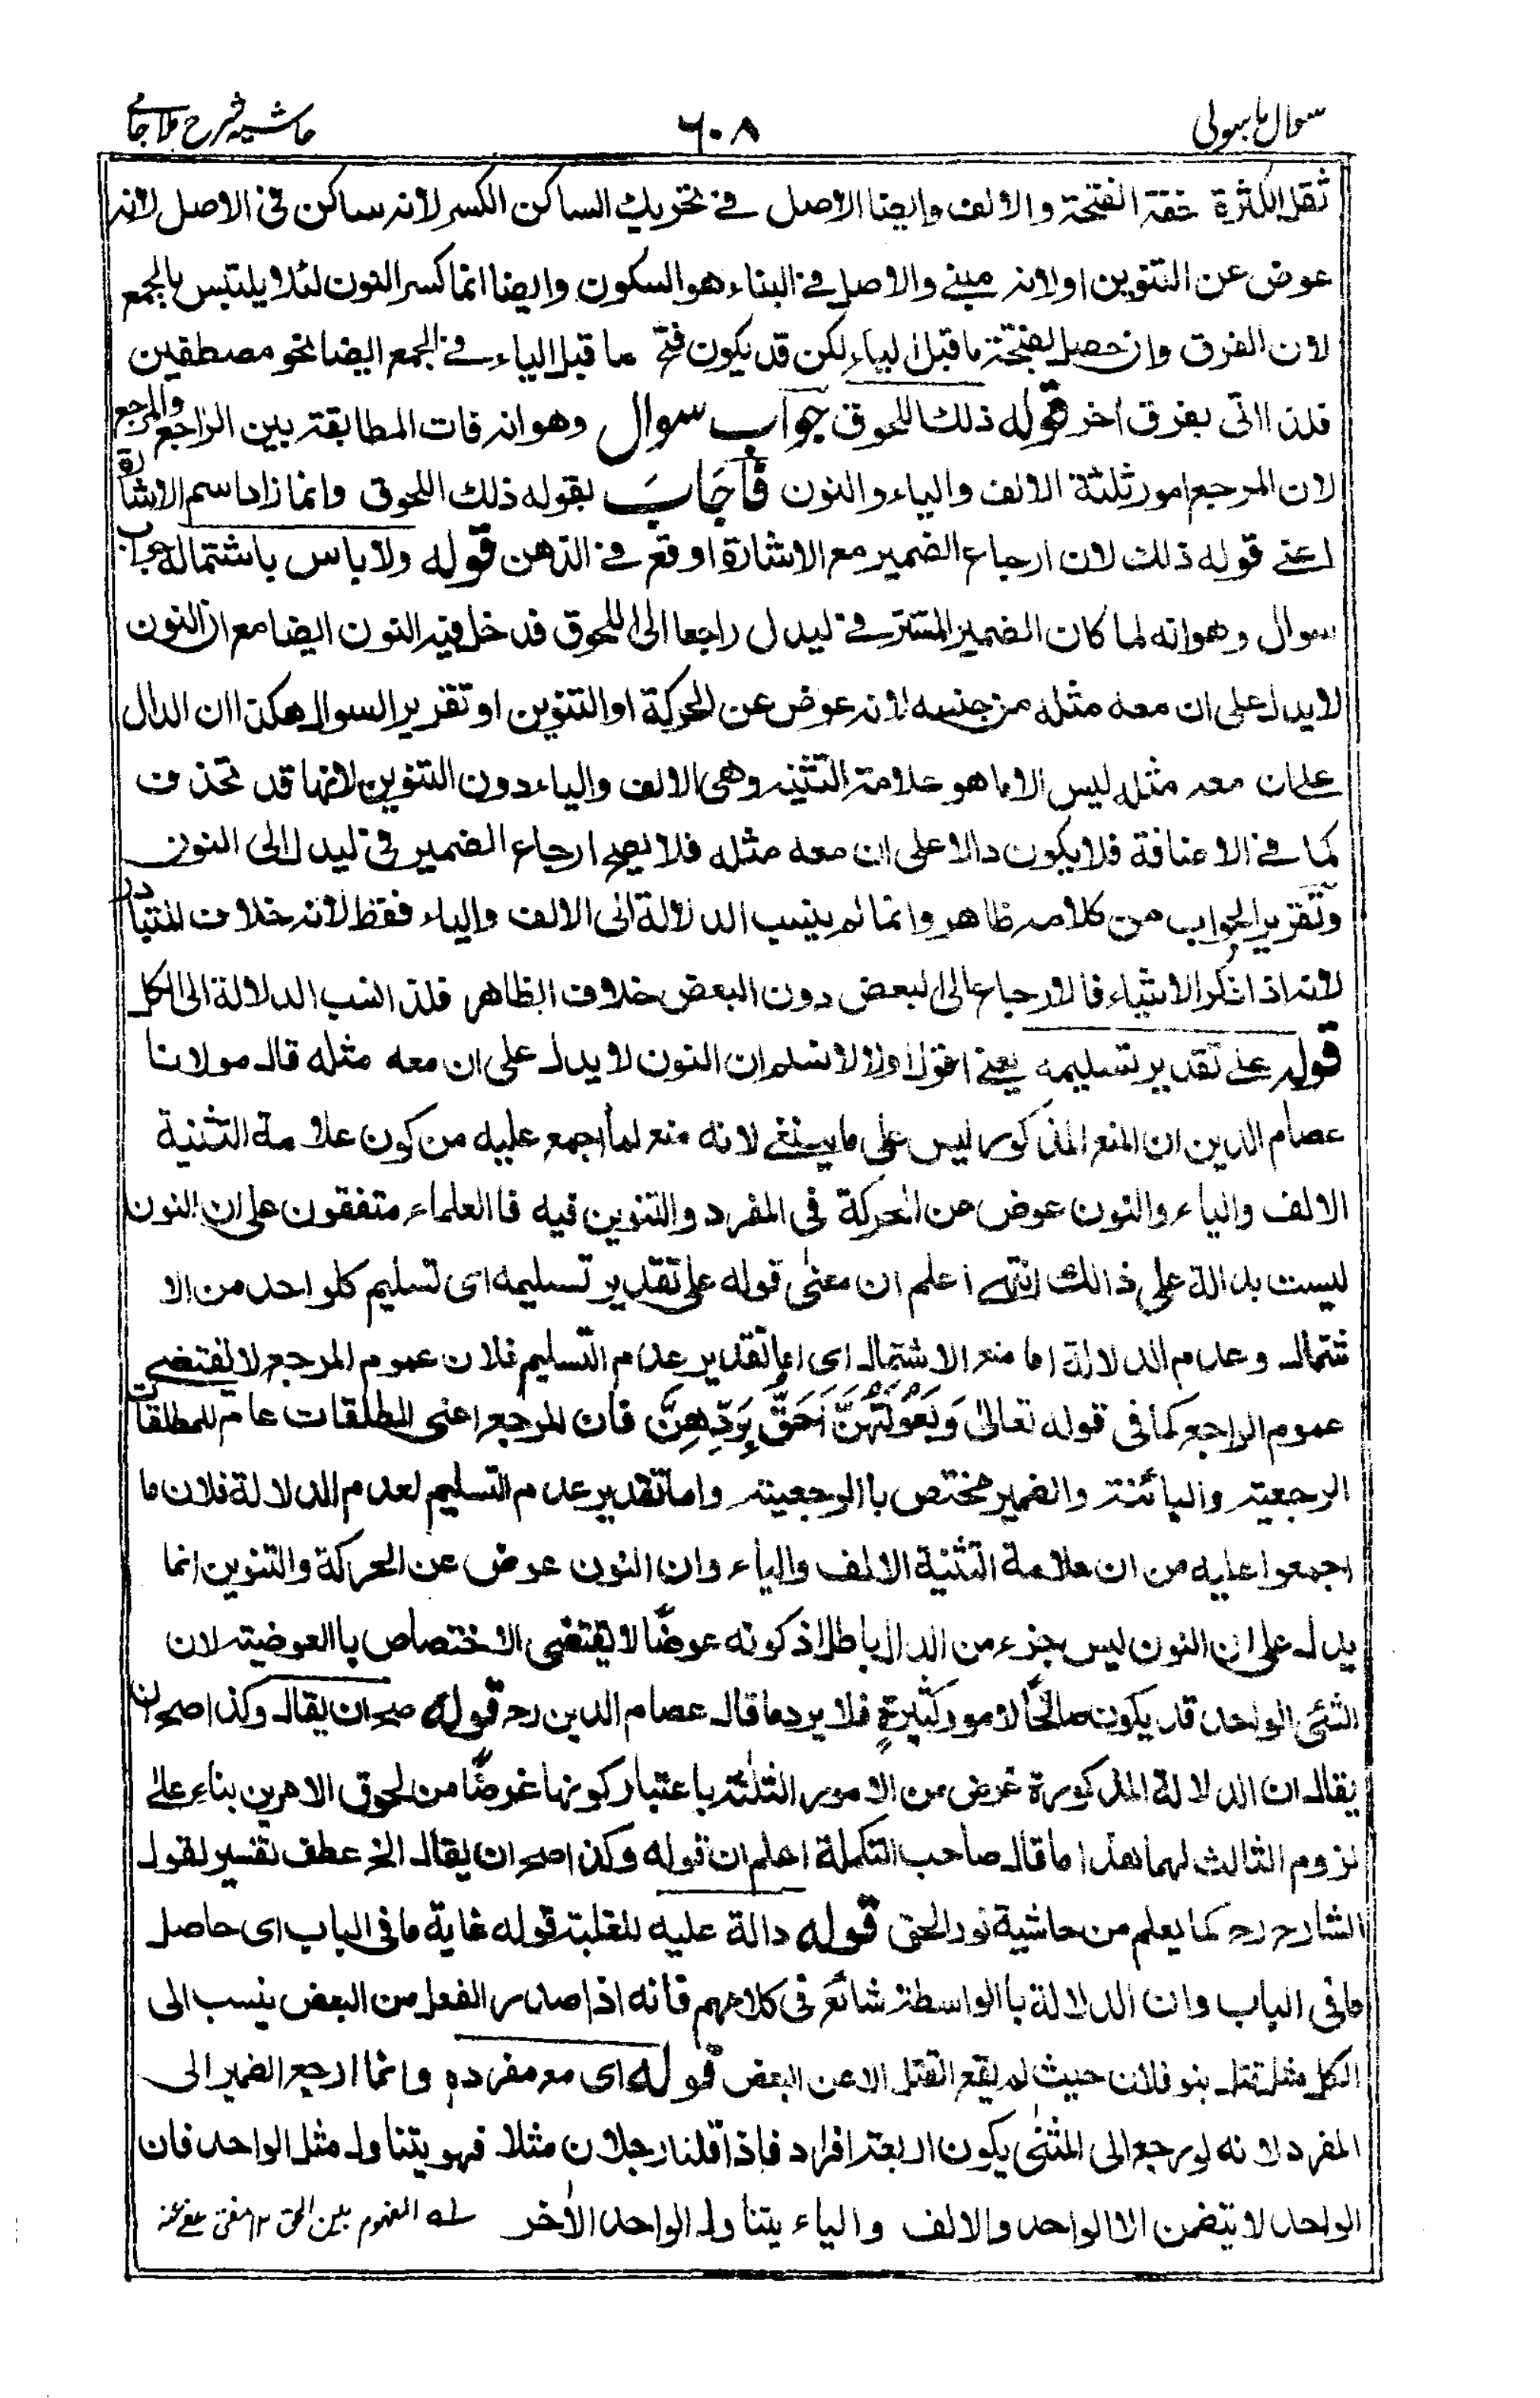 سوال باسولی ٦٠٨ حاشیه شرح ملا جامی
ثقل الكثرة خفة الفتحة والالف وايضا الاصل فے تحريك الساكن الكسر لانه ساكن فى الاصل لانه
عوض عن التنوين او لانه مبنے والاصل فے البناء هو السكون وايضا انما كسر النون لئلا يلتبس بالجمع
لان الفرق وان حصل بفتحة ما قبل الياء لكن قد يكون فتح ما قبل الياء فے الجمع ايضا نحو مصطفين
فلذا اتى بفرق اخر قوله ذلك اللحوق جواب سوال وهو انه فات المطابقة بين الراجع والمرجع
لان المرجع امور ثلثة الالف والياء والنون فَاَجَابَ بقوله ذلك اللحوق وانما زاد اسم الاشارة
اعنے قوله ذلك لان ارجاع الضمير مع الاشارة اوقع فے الذهن قوله ولا باس باشتماله جواب
سوال وهو انه لما كان الضمير المستتر فے ليدل راجعا الى اللحوق قد خل فيه النون ايضا مع ان النون
لا يدل على ان معه مثله من جنسه لانه عوض عن الحركة او التنوين او تقرير السوال هكذا ان الدال
على ان معه مثله ليس الا ما هو علامة التثنية وهى الالف والياء دون التنوين لانها قد تحذف
كما فے الاضافة فلا يكون دالا على ان معه مثله فلا يصح ارجاع الضمير فى ليدل الى النون
وتقرير الجواب من كلامه ظاهر وانما لم ينسب الدلالة الى الالف والياء فقط لانه خلاف المتبادر
لانه اذا ذكر الاشياء فالارجاع الى البعض دون البعض خلاف الظاهر فلذا نسب الدلالة الى الكل
قوله على تقدير تسليمه يعنے اقول اولا لا نسلم ان النون لا يدل على ان معه مثله قال مولانا
عصام الدين ان المنع المذكور ليس على ما ينبغے لانه منع لما اجمع عليه من كون علامة التثنية
الالف والياء والنون عوض من الحركة فى المفرد والتنوين فيه فا العلماء متفقون على ان النون
ليست بدالة على ذالك انتهے اعلم ان معنى قوله على تقدير تسليمه اى تسليم كلواحد من الا
شتمال وعدم الدلالة اما منع الاشتمال اى اما تقدير عدم التسليم فلان عموم المرجع لا يقتضے
عموم الراجع كما فى قوله تعالىٰ وَبُعُوْلَتُهُنَّ اَحَقُّ بِرَدِّهِنَّ فان المرجع اعنى المطلقات عام للمطلقات
الرجعية والبائنة والضمير مختص باالرجعية واما تقدير عدم التسليم لعدم الدلالة فلان ما
اجمعوا عليه من ان علامة التثنية الالف والياء وان النون عوض عن الحركة والتنوين انما
يدل على ان النون ليس جزء من الدال باطل اذ كونه عوضًا لا يقتضى الاختصاص باالعوضية لان
الشئى الواحد قد يكون صالحًا لامور كثيرةٍ فلا يرد ما قال عصام الدين رح قوله صح ان يقال وكذا صح ان
يقال ان الدلالة المذكورة غرض من الامور الثلثة باعتبار كونها غرضًا من لحوق الامرين بناء علىٰ
لزوم الثالث لهما هذا ما قال صاحب التكملة اعلم ان قوله وكذا صح ان يقال الخ عطف تفسير لقول
الشارح رح كما يعلم من حاشية نور الحق قوله دالة عليه للغلبة قوله غاية ما فى الباب اى حاصل
ما فى الباب وان الدلالة باالواسطة شائع فى كلامهم فانه اذا صدر الفعل من البعض ينسب الى
الكل مثل قتل بنو فلان حيث لم يقع القتل الا عن البعض قوله اى مع مفرده وانما ارجع الضمير الى
المفرد لانه لو رجع الى المثنى يكون اربعة افراد فاذا قلنا رجلان مثلا فهو يتناول مثل الواحد فان
الواحد لا يتضمن الا الواحد والالف والياء يتناول الواحد الأخر له المفهوم بين الحق ١٢ مفتى عفے عنه